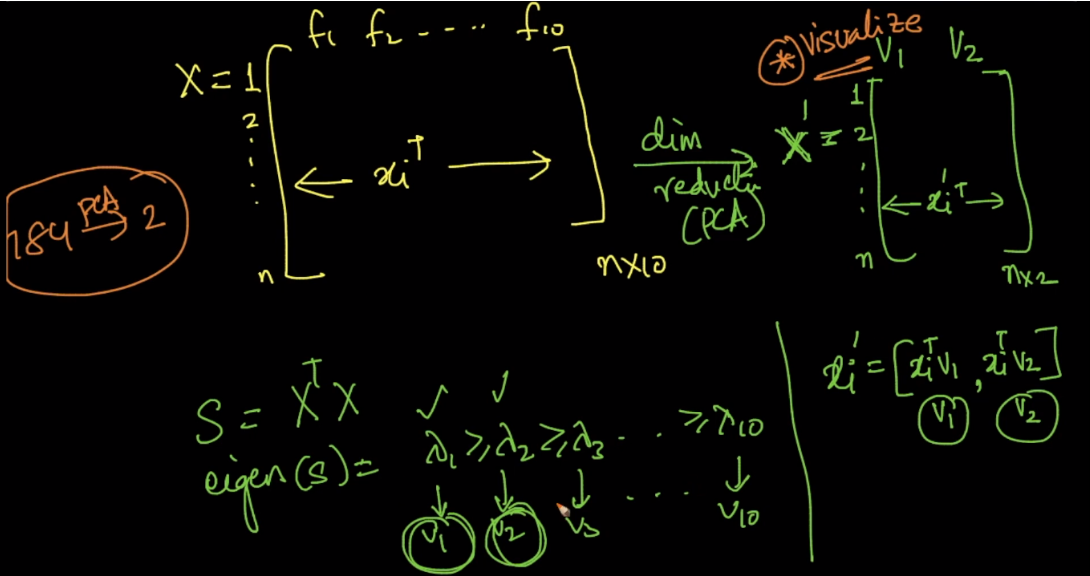 f₁ f₂ ---- .... f₁₀
X = 1
2
⋮
n
← xᵢᵀ →
n×10
dim
reducti
(PCA)
* Visualize
V₁ V₂
X' = 1
2
⋮
n
← xᵢ'ᵀ →
n×2
784 PCA→ 2
S = XᵀX
✓ ✓
eigen(S) = λ₁ ≥ λ₂ ≥ λ₃ . . . ≥ λ₁₀
↓ ↓ ↓ .... ↓
V₁ V₂ V₃ V₁₀
xᵢ' = [xᵢᵀV₁, xᵢᵀV₂]
V₁ V₂